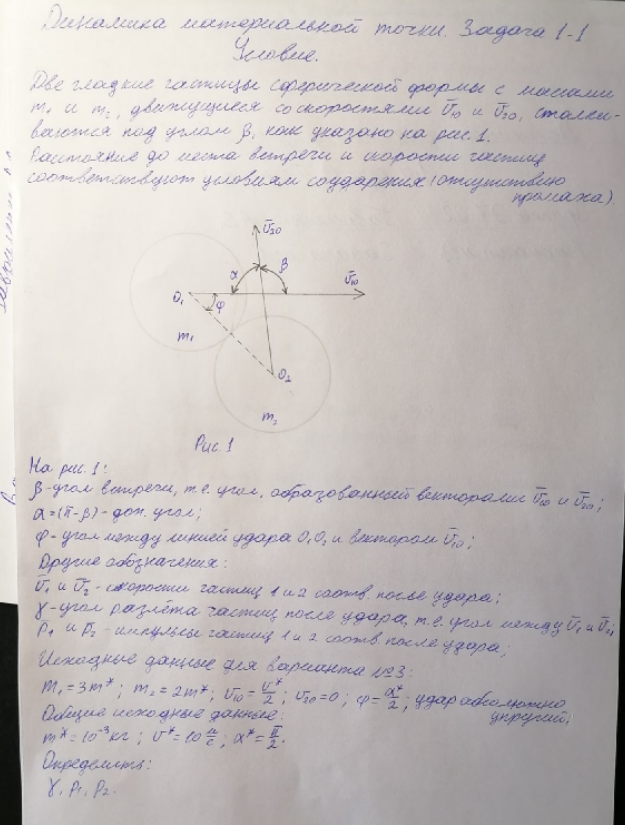 Динамика материальной точки. Задача 1-1
Условие.
Две гладкие частицы сферической формы с массами
m₁ и m₂, движущиеся со скоростями v̄₁₀ и v̄₂₀, сталки-
ваются под углом β, как указано на рис. 1.
Расстояние до места встречи и скорости частиц
соответствуют условиям соударения (отсутствию
промаха).
v̄₂₀
α β v̄₁₀
O₁ φ
m₁
O₂
m₂
Рис. 1
На рис. 1:
β-угол встречи, т.е. угол, образованный векторами v̄₁₀ и v̄₂₀;
α=(π-β)-доп. угол;
φ-угол между линией удара O₁O₂ и вектором v̄₁₀;
Другие обозначения:
v̄₁ и v̄₂-скорости частиц 1 и 2 соотв. после удара;
γ-угол разлёта частиц после удара, т.е. угол между v̄₁ и v̄₂;
p₁ и p₂-импульсы частиц 1 и 2 соотв. после удара;
Исходные данные для варианта №3:
m₁=3m*; m₂=2m*; v₁₀=v*/2; v₂₀=0; φ=α*/2; удар абсолютно
упругий;
Общие исходные данные:
m*=10⁻³кг; v*=10 м/с; α*=π/2.
Определить:
γ, p₁, p₂.